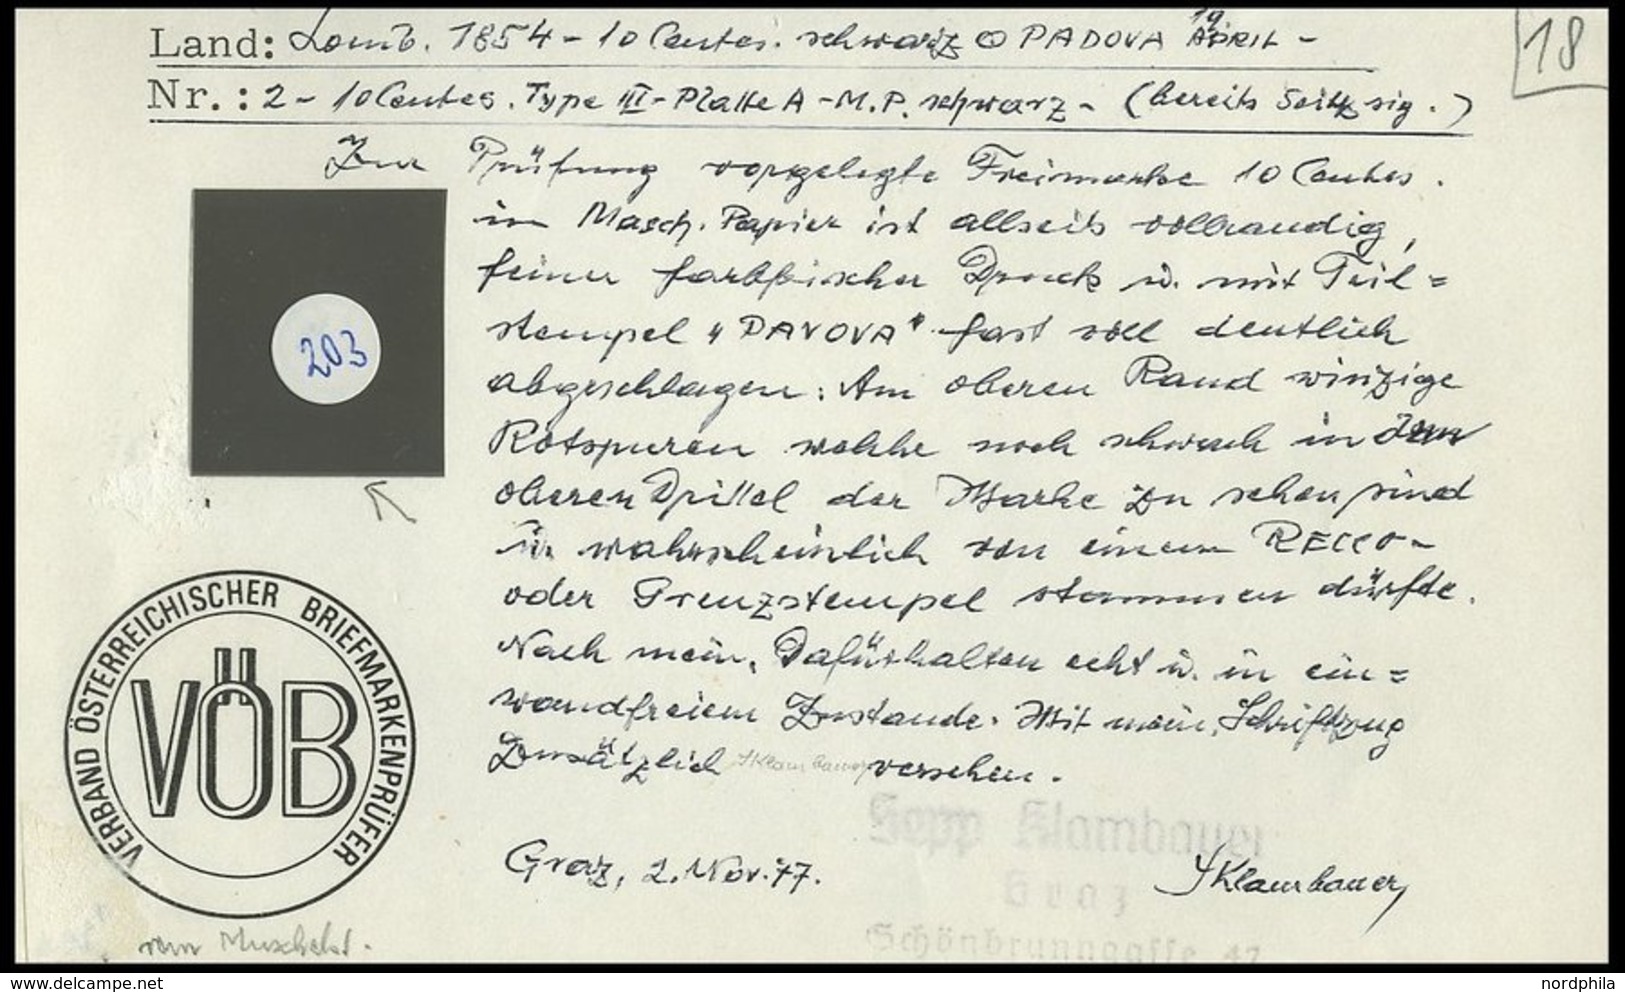 18
Land: Lomb. 1854 - 10 Centes. schwarz PADOVA 19. APRIL -
Nr.: 2 - 10 Centes. Type III - Platte A - M.P. schwarz - (bereits Seitz sig.)
Zur Prüfung vorgelegte Freimarke 10 Centes.
in Masch. Papier ist allseits vollrandig,
feiner farbfrischer Druck u. mit Teil=
stempel "PADOVA" fast voll deutlich
abgeschlagen. Am oberen Rand winzige
Rötspuren welche noch schwach in
oberen Drittel der Marke zu sehen sind
u. wahrscheinlich von einem RECCO-
oder Grenzstempel stammen dürfte.
Nach mein. Dafürhalten echt u. in ein=
wandfreiem Zustande. Mit mein. Schriftzug
zusätzlich SKlambauer versehen.
203
VERBAND ÖSTERREICHISCHER BRIEFMARKENPRÜFER
VÖB
Sepp Klambauer
Graz
Schönbrunngasse 47
Graz, 2. Nov. 77.
SKlambauer
vom
www.delcampe.net
nordphila